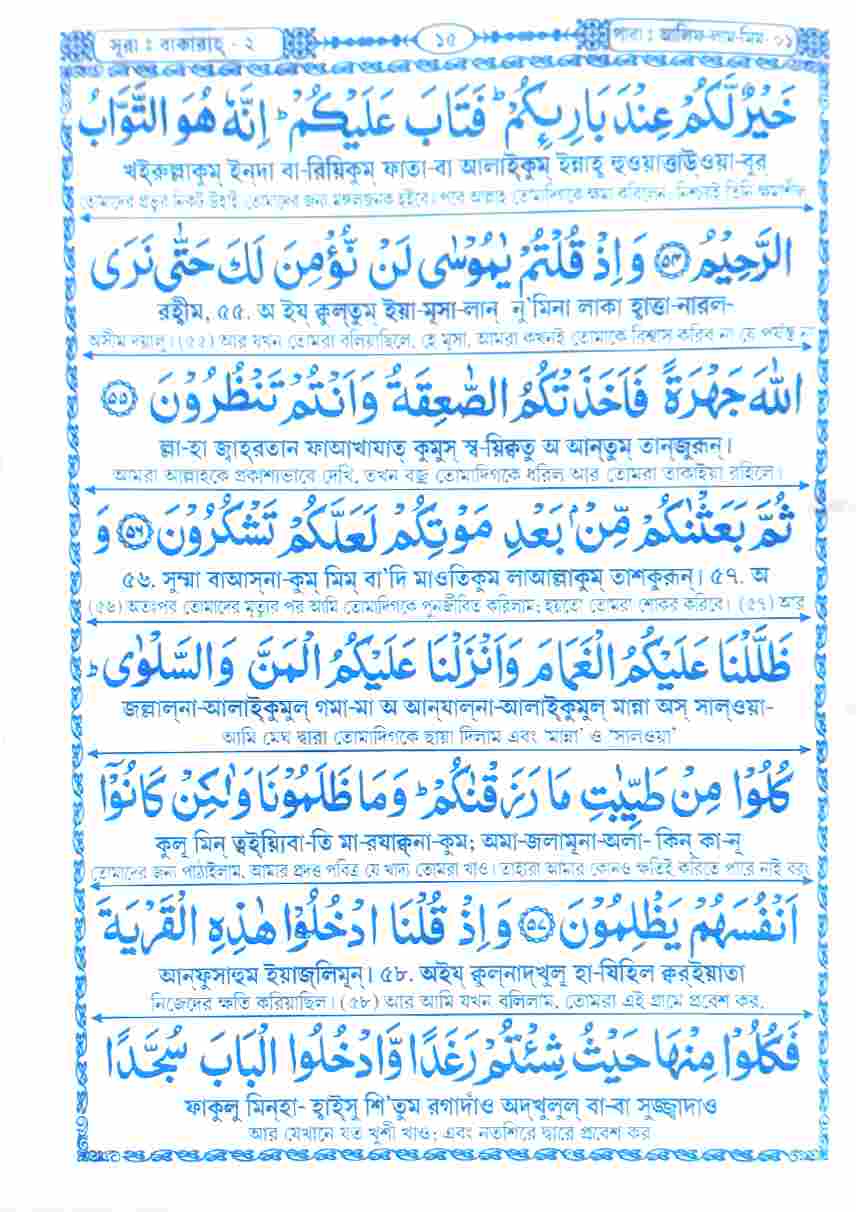 সূরা : বাকারাহ্ - ২
১৫
পারা : আলিফ-লাম-মিম-০১
خَيْرٌ لَّكُمْ عِنْدَ بَارِئِكُمْ ؕ فَتَابَ عَلَيْكُمْ ؕ اِنَّهٗ هُوَ التَّوَّابُ
খইরুল্লাকুম্ ইন্দা বা-রিয়িকুম্ ফাতা-বা আলাইকুম্ ইন্নাহূ হুওয়াত্তাউওয়া-বুর
তোমাদের প্রভুর নিকট উহাই তোমাদের জন্য মঙ্গলজনক হইবে। পরে আল্লাহ তোমাদিগকে ক্ষমা করিলেন, নিশ্চয়ই তিনি ক্ষমাশীল
الرَّحِيْمُ ۝۵۴ وَ اِذْ قُلْتُمْ يٰمُوْسٰى لَنْ نُّؤْمِنَ لَكَ حَتّٰى نَرَى
রহীম, ৫৫. অ ইয্ ক্বুল্তুম্ ইয়া-মূসা-লান্ নু'মিনা লাকা হাত্তা-নারল-
অসীম দয়ালু। (৫৫) আর যখন তোমরা বলিয়াছিলে, হে মূসা, আমরা কখনই তোমাকে বিশ্বাস করিব না যে পর্যন্ত না
اللّٰهَ جَهْرَةً فَاَخَذَتْكُمُ الصّٰعِقَةُ وَاَنْتُمْ تَنْظُرُوْنَ ۝۵۵
ল্লা-হা জ্বাহ্রতান ফাআখাযাত্ কুমুস্ স্ব-য়িক্বতু অ আন্তুম্ তান্জুরূন্।
আমরা আল্লাহকে প্রকাশ্যভাবে দেখি, তখন বজ্র তোমাদিগকে ধরিল আর তোমরা তাকাইয়া রহিলে।
ثُمَّ بَعَثْنٰكُمْ مِّنْۢ بَعْدِ مَوْتِكُمْ لَعَلَّكُمْ تَشْكُرُوْنَ ۝۵۶ وَ
৫৬. সুম্মা বাআস্না-কুম্ মিম্ বা'দি মাওতিকুম লাআল্লাকুম্ তাশকুরূন্। ৫৭. অ
(৫৬) অতঃপর তোমাদের মৃত্যুর পর আমি তোমাদিগকে পুনর্জীবিত করিলাম; হয়তো তোমরা শোকর করিবে। (৫৭) আর
ظَلَّلْنَا عَلَيْكُمُ الْغَمَامَ وَاَنْزَلْنَا عَلَيْكُمُ الْمَنَّ وَالسَّلْوٰى ؕ
জল্লাল্না-আলাইকুমুল্ গমা-মা অ আন্যাল্না-আলাইকুমুল্ মান্না অস্ সাল্ওয়া-
আমি মেঘ দ্বারা তোমাদিগকে ছায়া দিলাম এবং 'মান্না' ও 'সালওয়া'
كُلُوْا مِنْ طَيِّبٰتِ مَا رَزَقْنٰكُمْ ؕ وَمَا ظَلَمُوْنَا وَلٰكِنْ كَانُوْٓا
কুলূ মিন্ ত্বইয়্যিবা-তি মা-রযাক্বনা-কুম; অমা-জলামূনা-অলা- কিন্ কা-নূ
তোমাদের জন্য পাঠাইলাম, আমার প্রদত্ত পবিত্র যে খাদ্য তোমরা খাও। তাহারা আমার কোনও ক্ষতিই করিতে পারে নাই বরং
اَنْفُسَهُمْ يَظْلِمُوْنَ ۝۵۷ وَ اِذْ قُلْنَا ادْخُلُوْا هٰذِهِ الْقَرْيَةَ
আন্ফুসাহুম ইয়াজ্লিমূন্। ৫৮. অইয্ ক্বুল্নাদ্খুলূ হা-যিহিল ক্বর্ইয়াতা
নিজেদের ক্ষতি করিয়াছিল। (৫৮) আর আমি যখন বলিলাম, তোমরা এই গ্রামে প্রবেশ কর,
فَكُلُوْا مِنْهَا حَيْثُ شِئْتُمْ رَغَدًا وَّادْخُلُوا الْبَابَ سُجَّدًا
ফাকুলু মিন্হা- হাইসু শি'তুম রগাদাঁও অদ্খুলুল্ বা-বা সুজ্জ্বাদাও
আর যেখানে যত খুশী খাও; এবং নতশিরে দ্বারে প্রবেশ কর